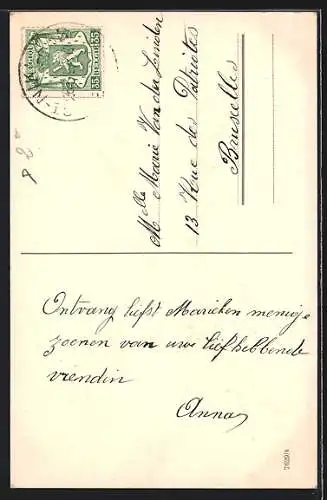 BELGIQUE BELGIË
35 35
Melle Marie Van der Linden
13 Rue des Patriotes
Bruxelles
Ontvang liefst Marieken menige
zoenen van uwe liefhebbende
vriendin
Anna
7629/4